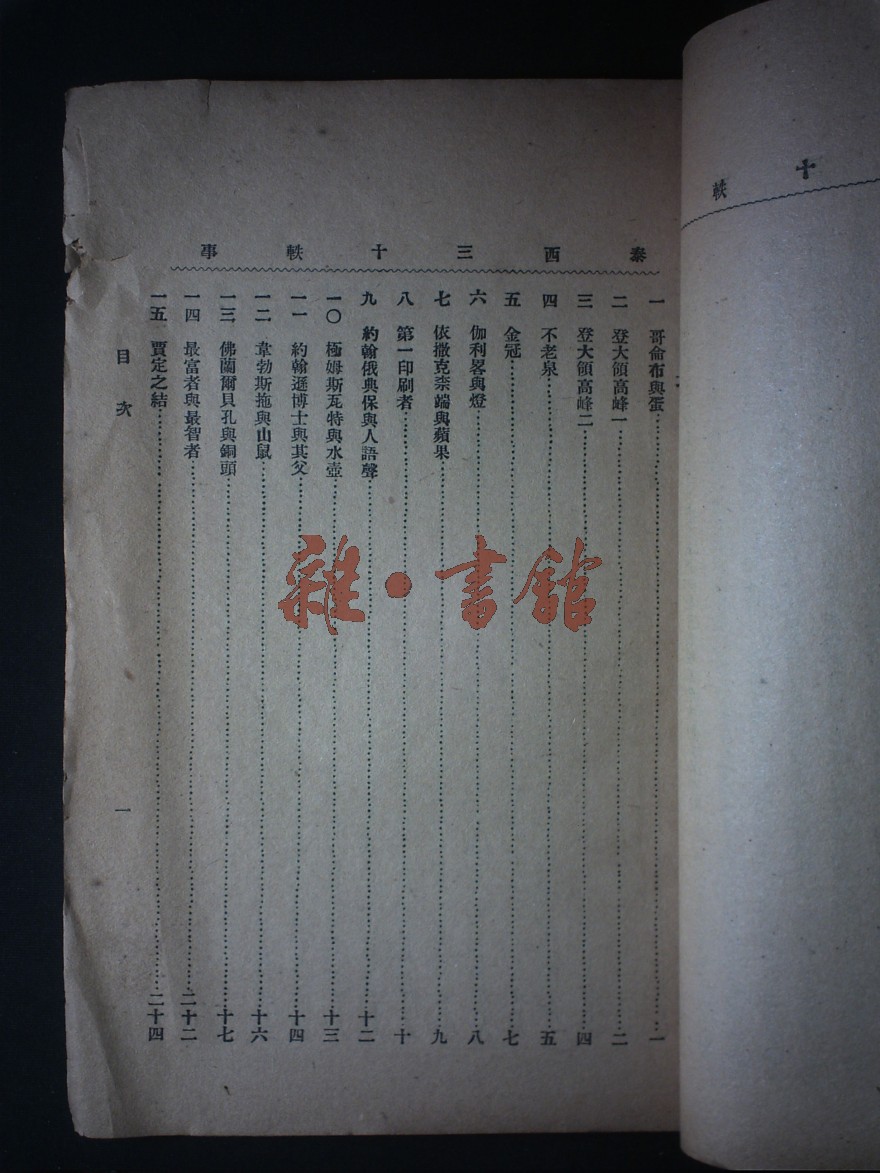 泰西三十軼事
一　哥侖布與蛋……一
二　登大領高峰一……二
三　登大領高峰二……四
四　不老泉……五
五　金冠……七
六　伽利畧與燈……八
七　依撒克柰端與蘋果……九
八　第一印刷者……十
九　約翰俄典保與人語聲……十二
一〇　極姆斯瓦特與水壺……十三
一一　約翰遜博士與其父……十四
一二　韋勃斯拖與山鼠……十六
一三　佛蘭爾貝孔與銅頭……十七
一四　最富者與最智者……二十二
一五　賈定之結……二十四
目次
一
十軼
雜·書館